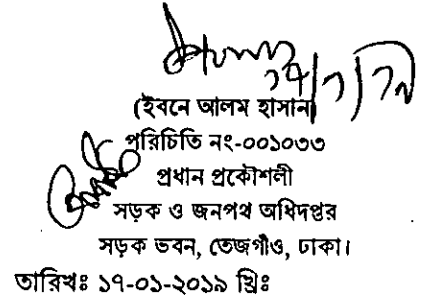 ১৭/১/১৯
(ইবনে আলম হাসান)
পরিচিতি নং-০০১০৩৩
প্রধান প্রকৌশলী
সড়ক ও জনপথ অধিদপ্তর
সড়ক ভবন, তেজগাঁও, ঢাকা।
তারিখঃ ১৭-০১-২০১৯ খ্রিঃ